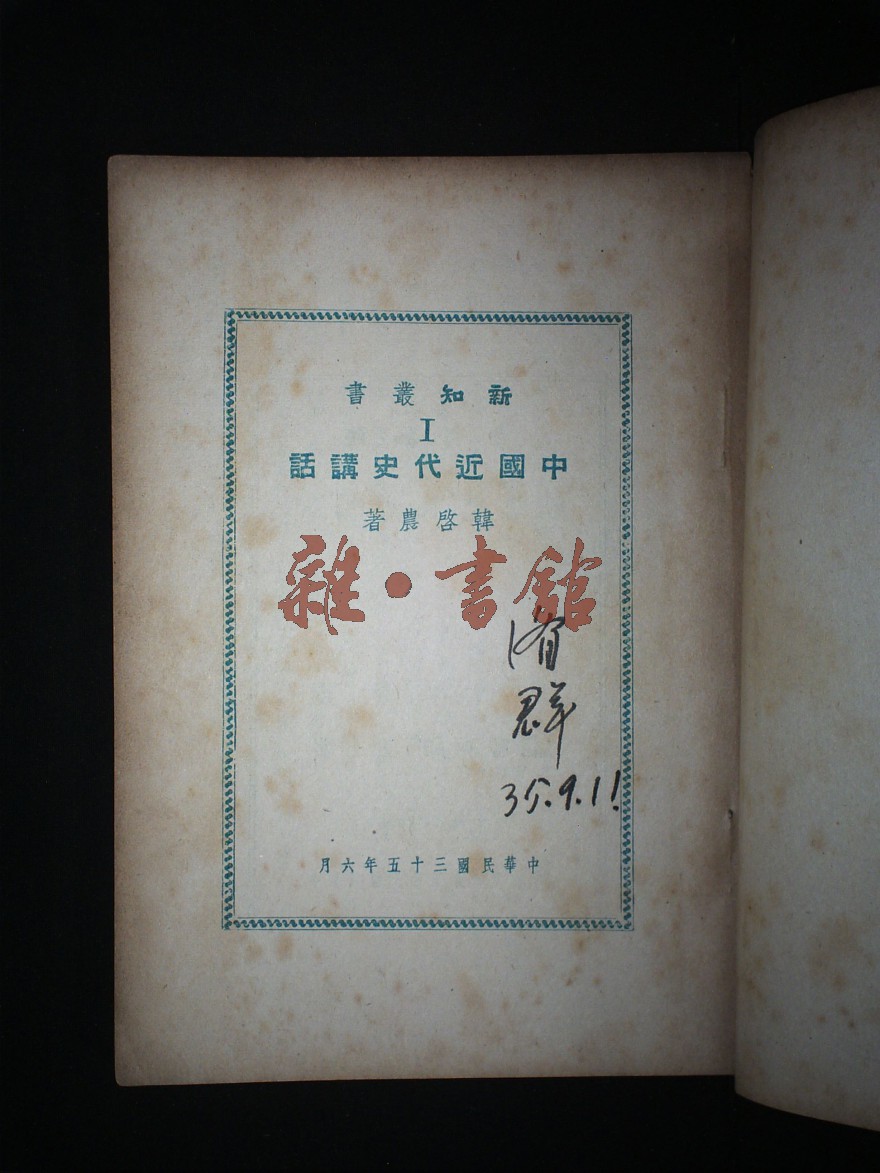 新知叢書
I
中國近代史講話
韓啓農著
雜·書館
群
35.9.11
中華民國三十五年六月